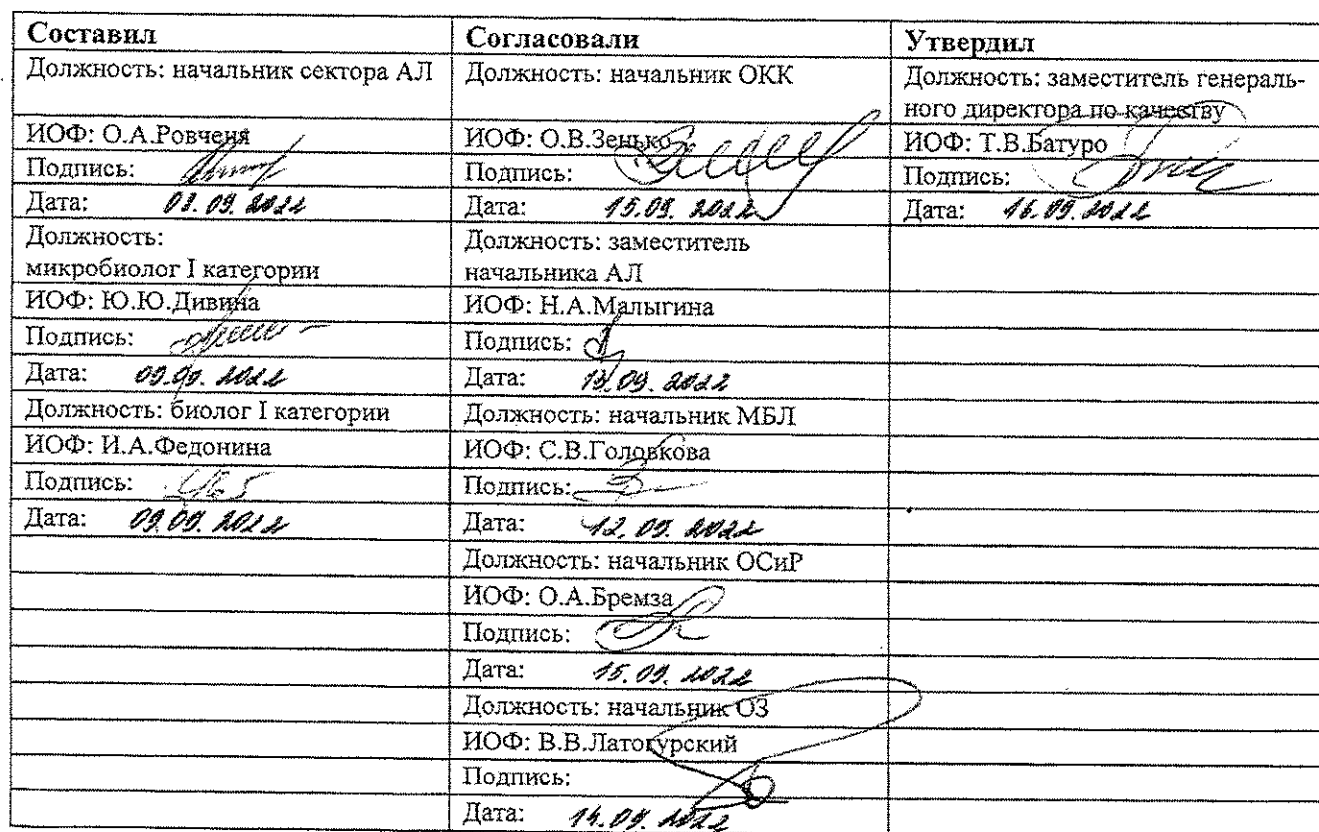 Составил Согласовали Утвердил
Должность: начальник сектора АЛ Должность: начальник ОКК Должность: заместитель генераль-
ного директора по качеству
ИОФ: О.А.Ровченя ИОФ: О.В.Зенько ИОФ: Т.В.Батуро
Подпись: Подпись: Подпись:
Дата: 09.2022 Дата: 15.09.2022 Дата: 16.09.2022
Должность: Должность: заместитель
микробиолог I категории начальника АЛ
ИОФ: Ю.Ю.Дивина ИОФ: Н.А.Малыгина
Подпись: Подпись:
Дата: 09.09.2022 Дата: 13.09.2022
Должность: биолог I категории Должность: начальник МБЛ
ИОФ: И.А.Федонина ИОФ: С.В.Головкова
Подпись: Подпись:
Дата: 09.09.2022 Дата: 12.09.2022
Должность: начальник ОСиР
ИОФ: О.А.Бремза
Подпись:
Дата: 15.09.2022
Должность: начальник ОЗ
ИОФ: В.В.Латогурский
Подпись:
Дата: 14.09.2022